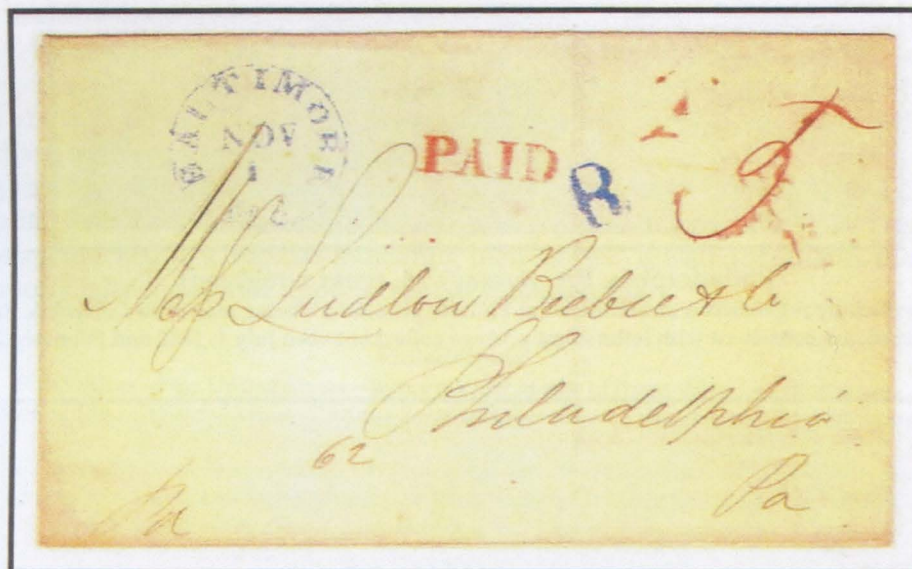 BALTIMORE
NOV
1
PAID
R
5
Mess Ludlow Beebee & Co
Philadelphia
62
Pa
Pa